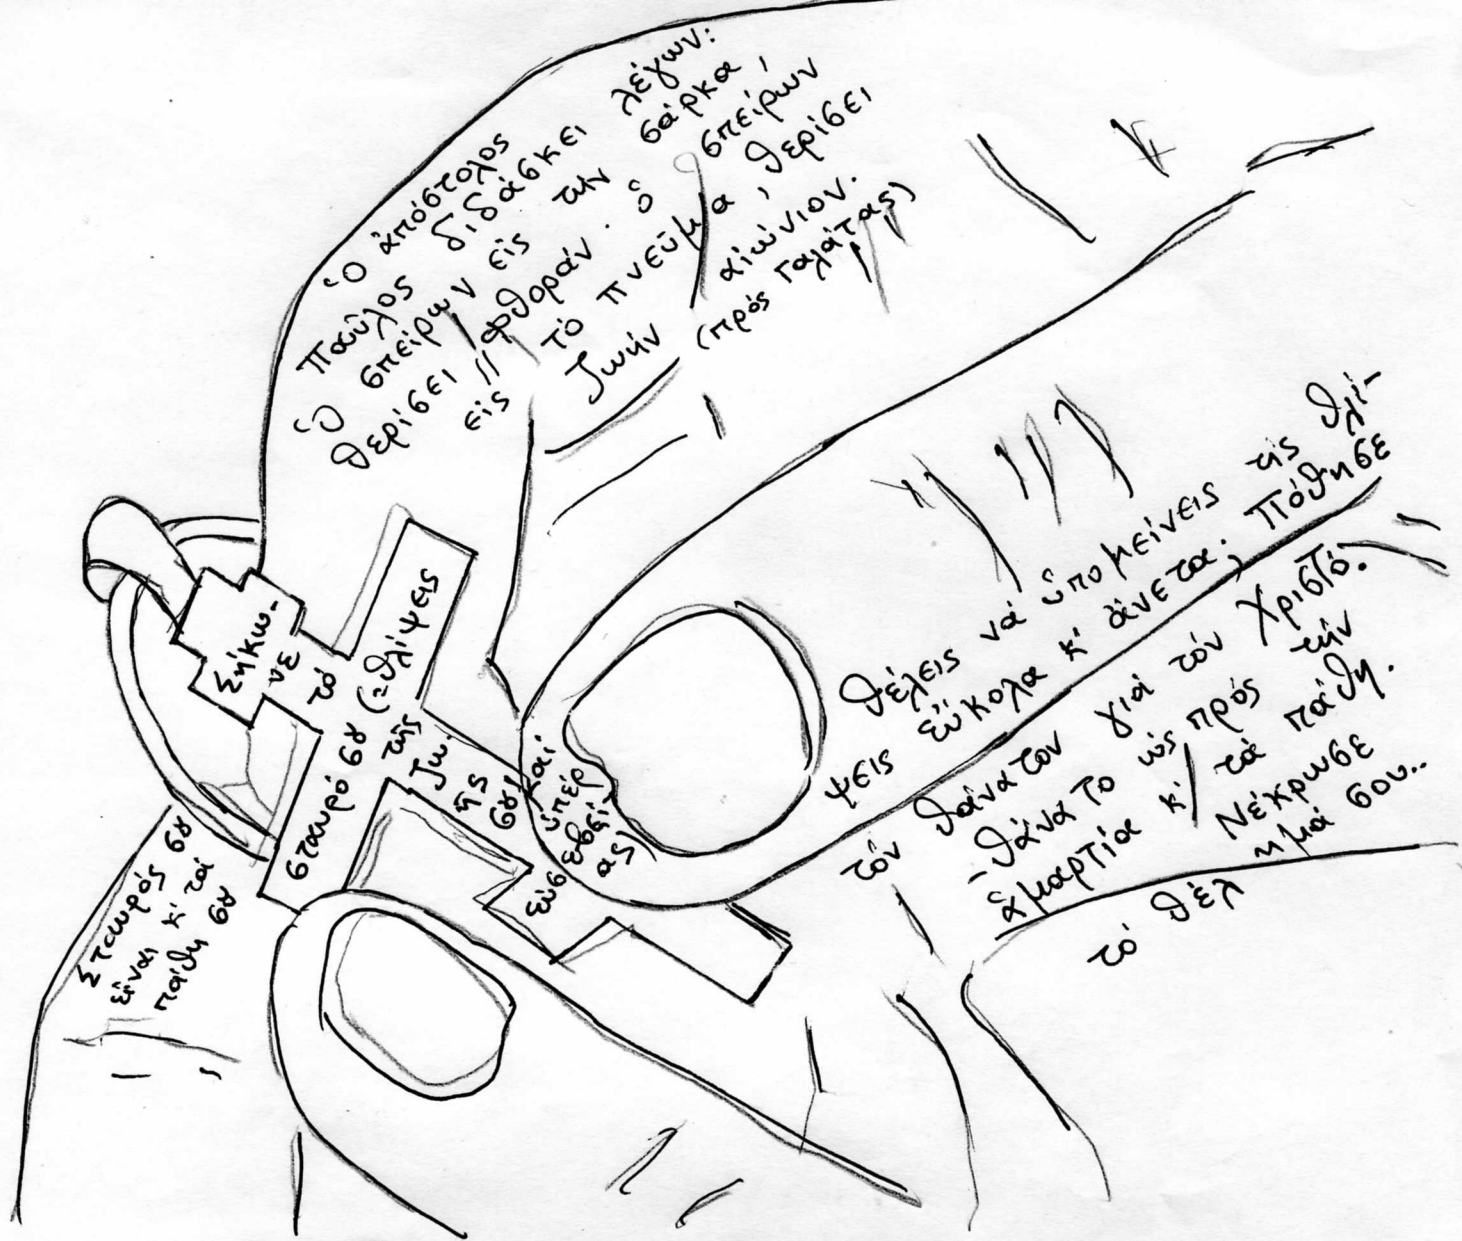 Ὁ ἀπόστολος
Παῦλος διδάσκει λέγων:
Ὁ σπείρων εἰς τὴν σάρκα,
θερίσει φθοράν. ὁ σπείρων
εἰς τὸ πνεῦμα, θερίσει
Ζωήν αἰώνιον.
(πρός Γαλάτας)
Σήκω-
νε
τό
σταυρό σȣ (=θλίψεις
τῆς
Ζω
ῆς
σȣ) και
ὑπέρ
εὐσεβεί
ας)
Σταυρός σȣ
εἶναι κ' τά
πάθη σȣ
Θέλεις νά ὑπομείνεις τίς θλί-
ψεις εὔκολα κ' ἄνετα; Πόθησε
τόν θάνατον γιά τόν Χριστό.
-θάνατο ὡς πρός τήν
ἁμαρτία κ' τά πάθη.
Νέκρωσε
τό θέλημά σου..